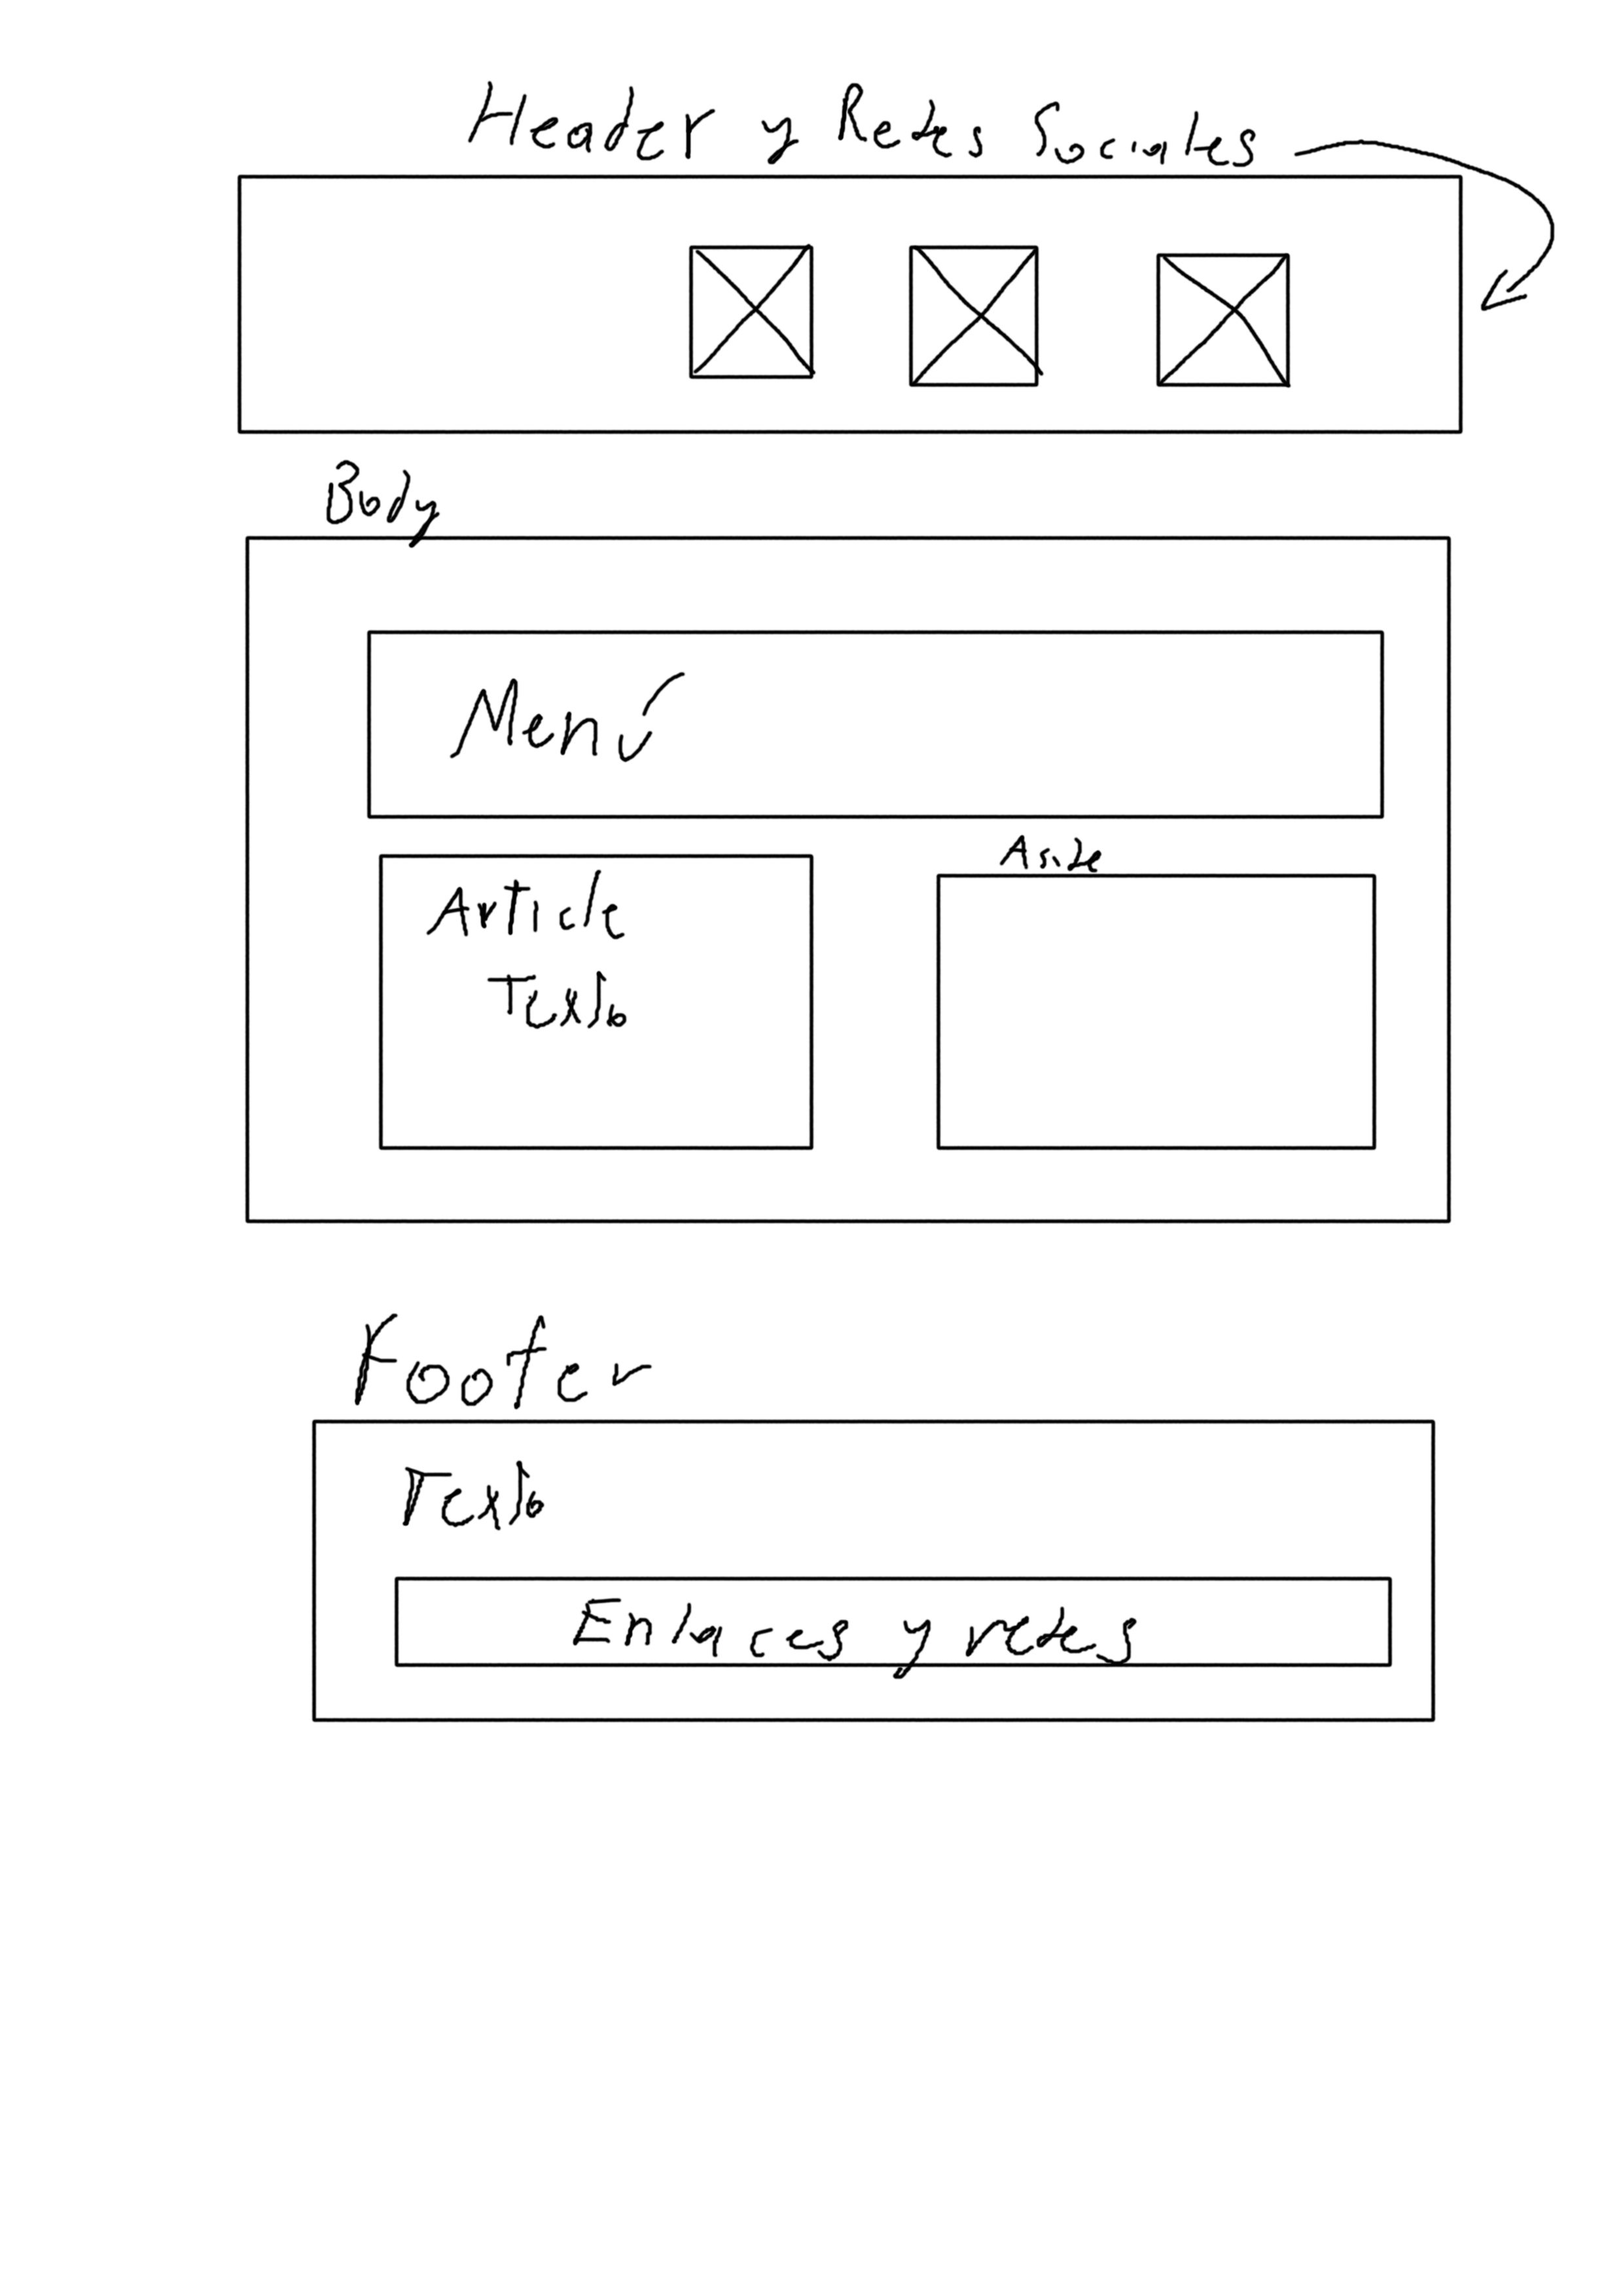 Header y Redes Sociales
Body
Menú
Aside
Article
Texto
Footer
Texto
Enlaces y redes